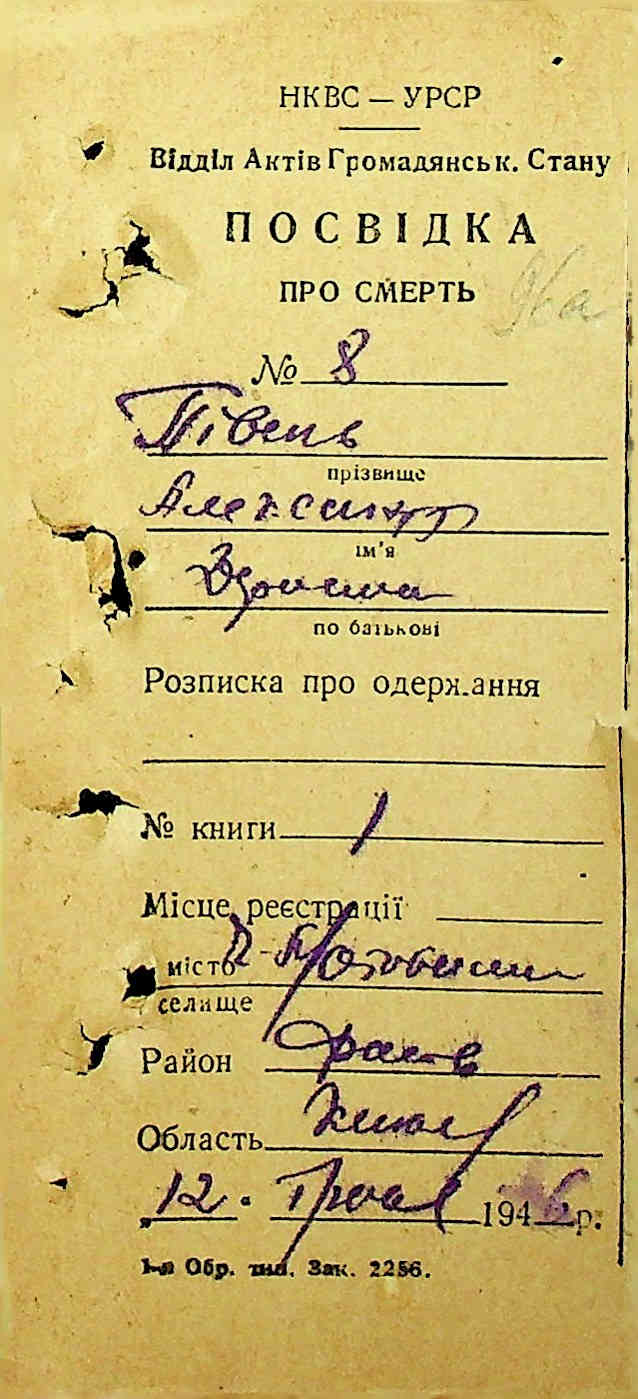 НКВС — УРСР
Відділ Актів Громадянськ. Стану
ПОСВІДКА
ПРО СМЕРТЬ
96а
№ 8
Півень
прізвище
Александр
ім'я
по батькові
Розписка про одержання
№ книги 1
Місце реєстрації
місто
селище
Район Фаст в
Область Киев
„12. Трав 194 р.
1-а Обр. тип. Зак. 2256.